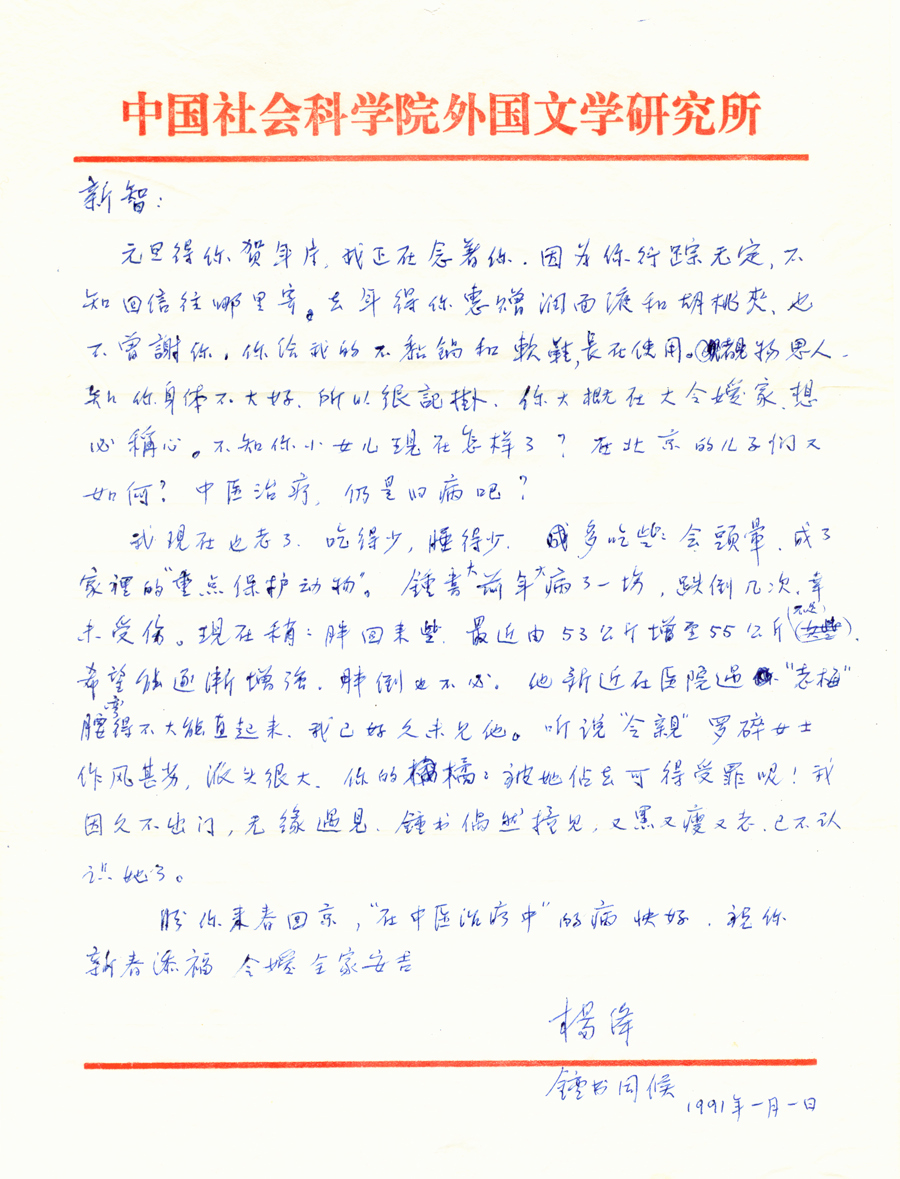 中国社会科学院外国文学研究所
新智：
元旦得你贺年片，我正在念着你．因为你行踪无定，不
知回信往哪里寄。去年得你惠赠润面液和胡桃夹，也
不曾謝你，你给我的不黏鍋和軟鞋，長在使用。覩物思人．
知你身体不大好．所以很記掛．你大概在大令嫒家．想
必稱心。不知你小女儿现在怎样了？在北京的儿子们又
如何？中医治疗，仍是旧病吧？
我現在也老了．吃得少，睡得少．多吃些：会頭暈．成了
家裡的“重点保护动物”。鍾書大前年大病了一场，跌倒几次，幸
未受伤。現在稍：胖回来些．最近由53公斤增至55公斤（不足）．
希望能逐漸增強．胖倒也不必。他新近在医院遇“老梅”
腰弯得不大能直起来．我已好久未见他。听说“令親”罗碎女士
作风甚劣，派头很大．你的橘：被她佔去可得受罪呢！我
因久不出门，无缘遇見．鍾书偶然撞见，又黑又瘦又老．已不认
识她了。
盼你来春回京，“在中医治疗中”的病快好．祝你
新春添福 令嫒全家安吉
楊绛
鍾书同候
1991年一月一日